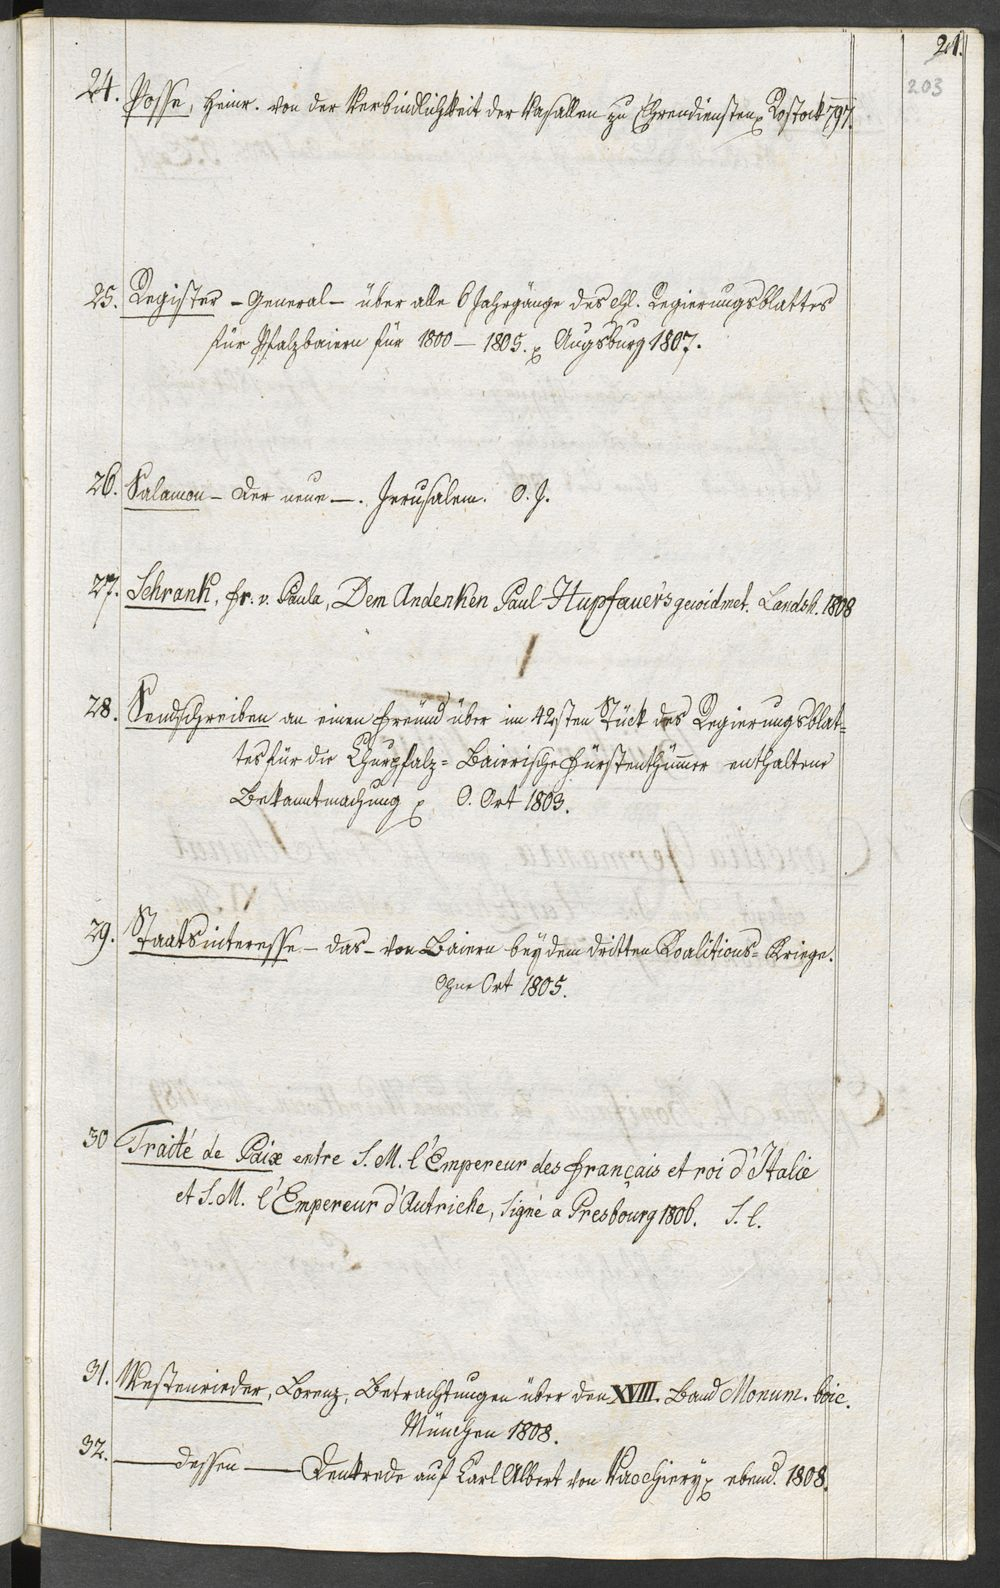 21.
203
24. Posse, Heinr. von der Verbindlichkeit der Vasallen zu Ehrendiensten Rostock 797.
25. Register – General – über alle 6 Jahrgänge des chl. Regierungsblattes
für Pfalzbaiern für 1800 – 1805. Augsburg 1807.
26. Salamon – der neue –. Jerusalem. O. J.
27. Schrank, Fr. v. Paula, Dem Andenken Paul Hupfauer's gewidmet. Landsh. 1808
28. Sendschreiben an einen Freünd über im 42sten Stück des Regierungsblat=
tes für die Churpfalz=Baierische Fürstenthümmer enthaltene
Bekanntmachung O. Ort 1803.
29. Staatsinteresse – das – von Baiern bey dem dritten Koalitions=Kriege.
Ohne Ort 1805.
30 Traité de Paix entre S. M. l'Empereur des français et roi d'Italie
et S. M. l'Empereur d'Autriche, Signé a Presbourg 1806. S. l.
31. Westenrieder, Lorenz, Betrachtungen über den XVIII. Band Monum. boic.
München 1808.
32. — dessen — Denkrede auf Carl Albert von Vacchiery ebend. 1808.